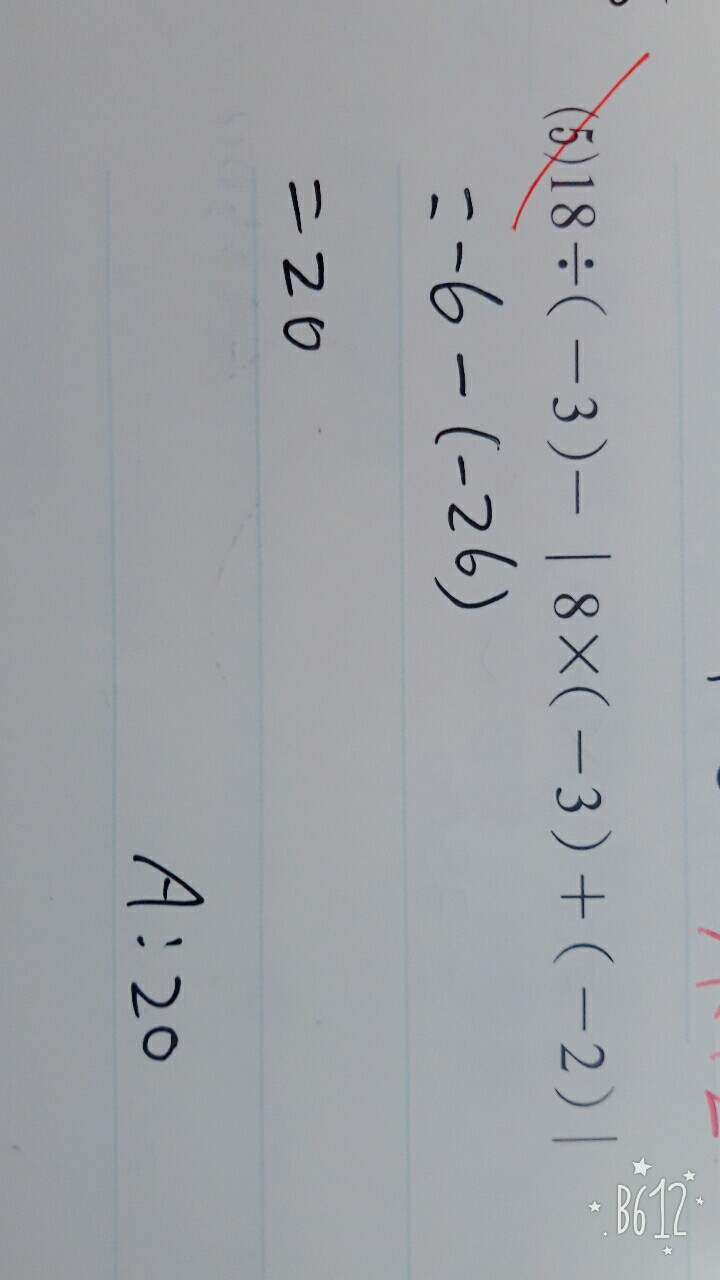 (5)18÷(-3)-|8×(-3)+(-2)|
=-6-(-26)
=20
A:20
B612